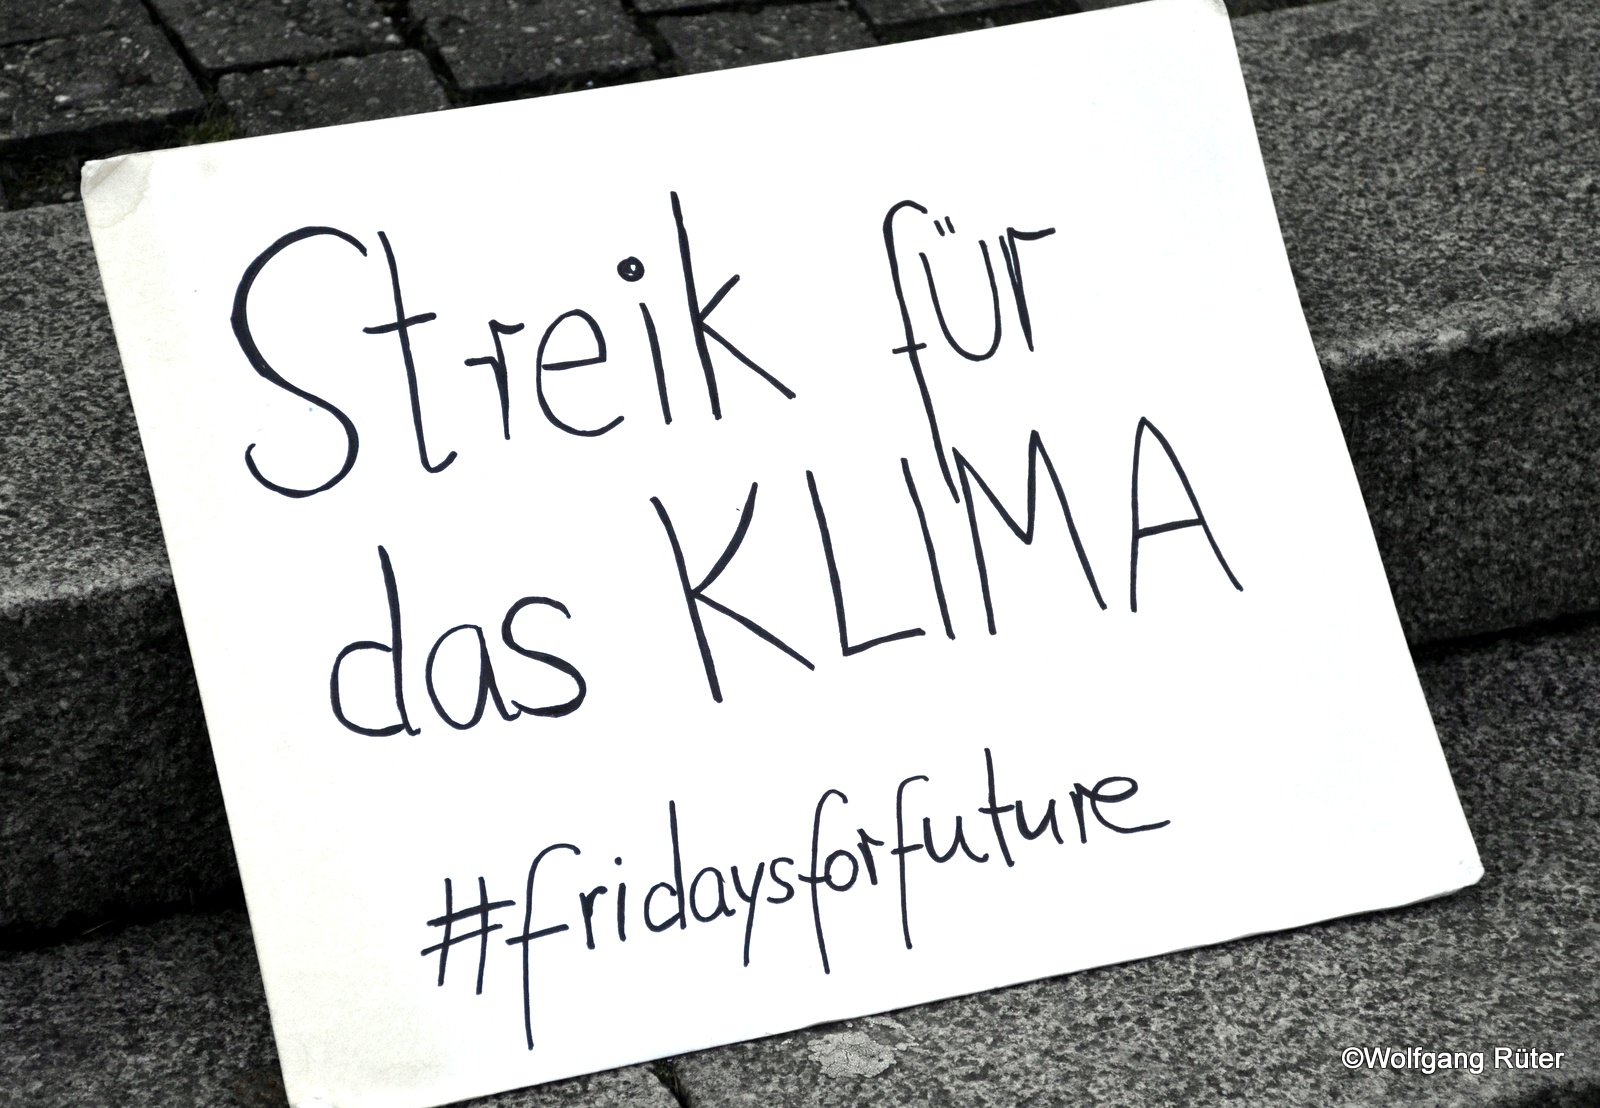 Streik für
das KLIMA
#fridaysforfuture
©Wolfgang Rüter